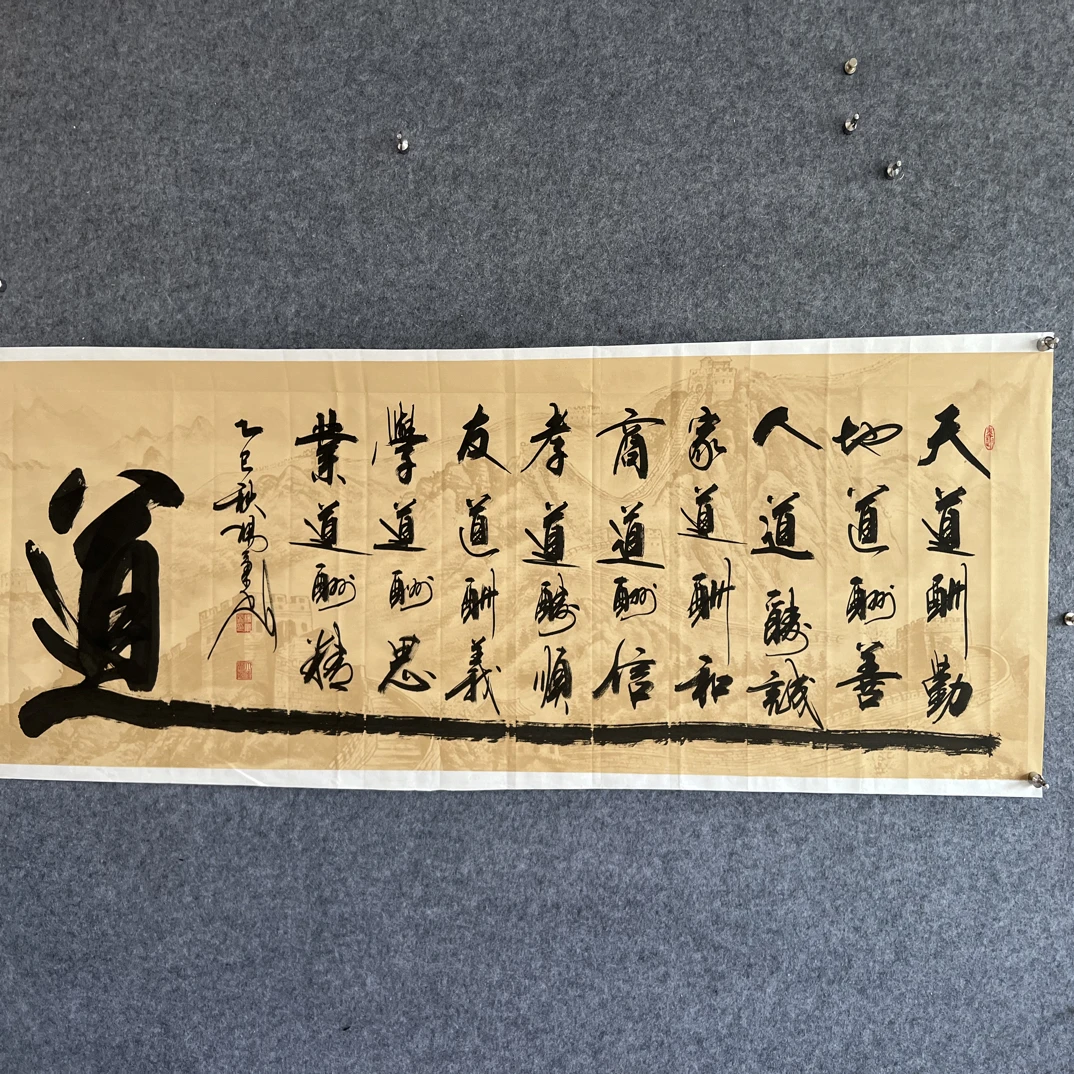 天道酬勤
地道酬善
人道醻誠
家道酬和
商道酬信
孝道醻順
友道酬義
學道酬思
業道酬精
乙巳秋陽
道